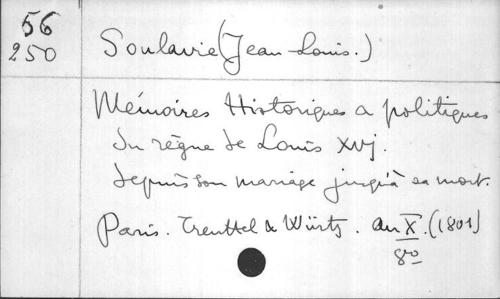 56
250
Soulavie (Jean Louis.)
Mémoires Historiques & politiques
du règne de Louis XVj.
depuis son mariage jusqu'à sa mort.
Paris. Treuttel & Würtz. An X. (1801)
8o